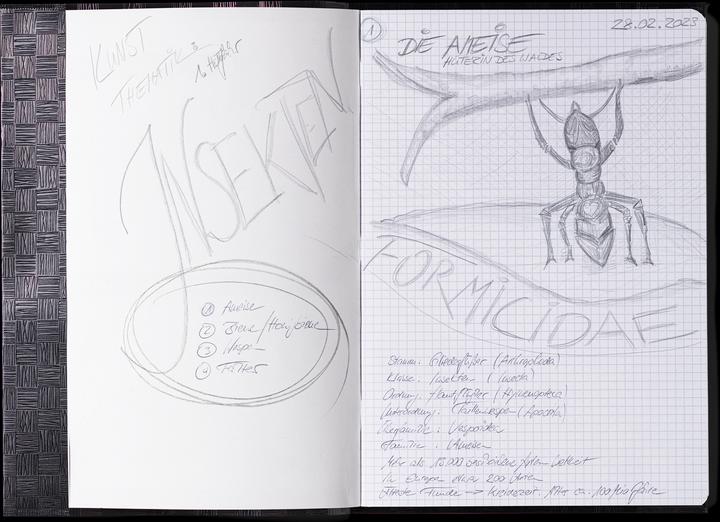 KUNST
THEMATIK:
1. Halbjahr
INSEKTEN
1 Ameise
2 Biene / Honigbiene
3 Wespe
4
1
28.02.2023
DIE AMEISE
HÜTERIN DES WALDES
FORMICIDAE
Stamm: Gliederfüßer (Arthropoda)
Klasse: Insekten (Insecta)
Ordnung: Hautflügler (Hymenoptera)
Unterordnung: Taillenwespen (Apocrita)
Überfamilie: Vespoidea
Familie: Ameisen
Mehr als 13.000 Arten bekannt
In Europa etwa 200 Arten
Älteste Funde → Kreidezeit. Alter ca. 100 Mio Jahre